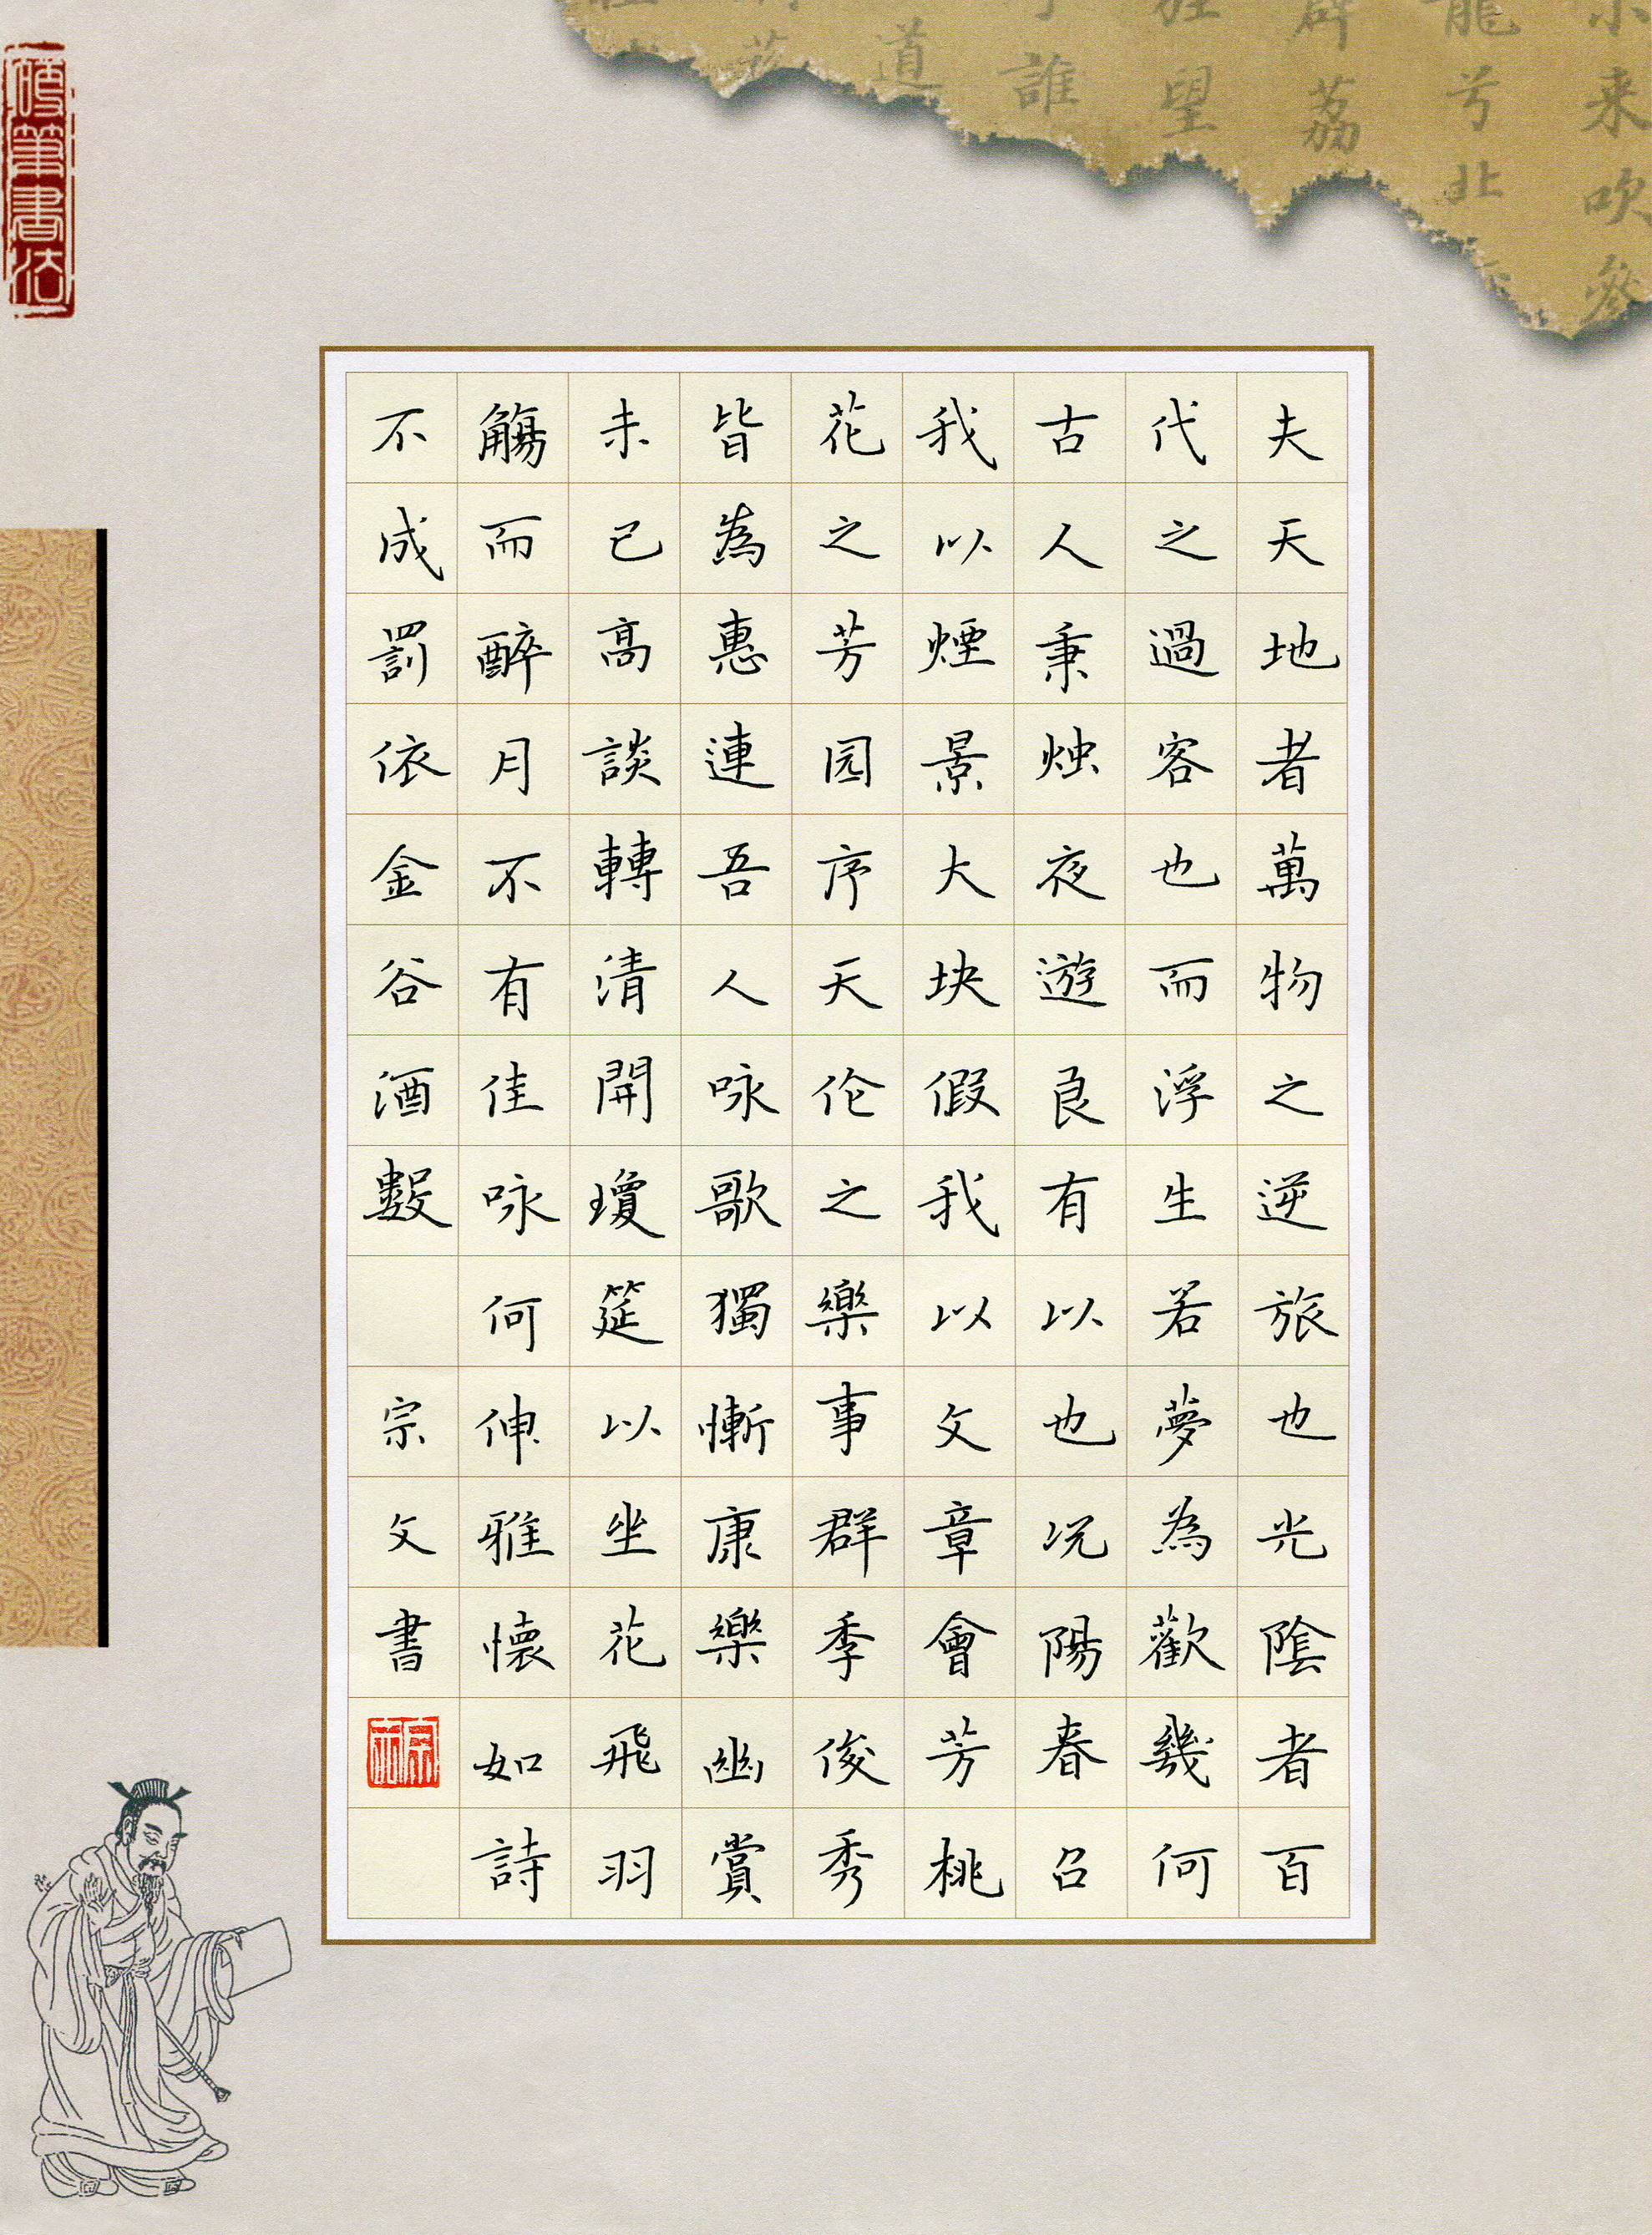 夫天地者萬物之逆旅也光陰者百
代之過客也而浮生若夢為歡幾何
古人秉烛夜遊良有以也况陽春召
我以煙景大块假我以文章會芳桃
花之芳园序天伦之樂事群季俊秀
皆為惠連吾人咏歌獨慚康樂幽賞
未已高談轉清開瓊筵以坐花飛羽
觴而醉月不有佳咏何伸雅懷如詩
不成罰依金谷酒數 宗文書
硬筆書法
来吹參
龍兮北
荔
望
誰
道